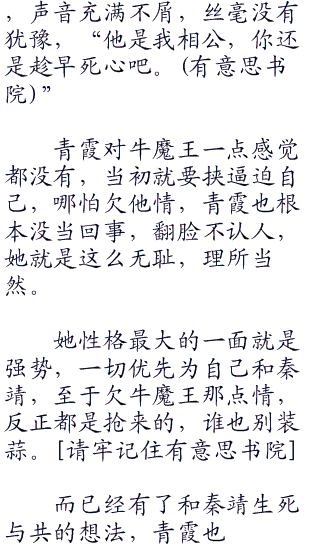 ，声音充满不屑，丝毫没有
犹豫，“他是我相公，你还
是趁早死心吧。(有意思书
院)”
青霞对牛魔王一点感觉
都没有，当初就要挟逼迫自
己，哪怕欠他情，青霞也根
本没当回事，翻脸不认人，
她就是这么无耻，理所当
然。
她性格最大的一面就是
强势，一切优先为自己和秦
靖，至于欠牛魔王那点情，
反正都是抢来的，谁也别装
蒜。[请牢记住有意思书院]
而已经有了和秦靖生死
与共的想法，青霞也